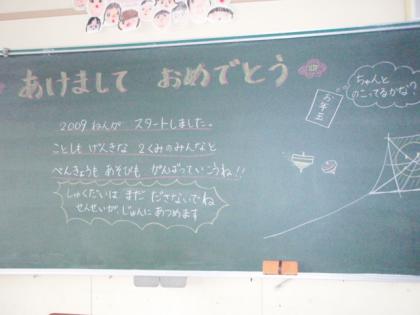 あけまして おめでとう
ちゃんと
のこってるかな?
お年玉
2009 ねんが スタートしました。
ことしも げんきな 2くみのみんなと
べんきょうも あそびも がんばっていこうね!!
しゅくだいは まだ ださないでね
せんせいが、じゅんにあつめます